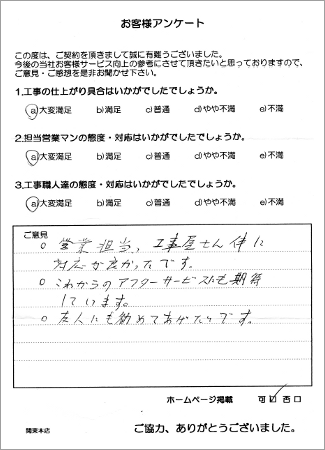 お客様アンケート
この度は、ご契約を頂きまして誠に有難うございました。
今後の当社お客様サービス向上の参考にさせて頂きたいと思っておりますので、
ご意見・ご感想を是非お聞かせ下さい。
1.工事の仕上がり具合はいかがでしたでしょうか。
a)大変満足 b)満足 c)普通 d)やや不満 e)不満
2.担当営業マンの態度・対応はいかがでしたでしょうか。
a)大変満足 b)満足 c)普通 d)やや不満 e)不満
3.工事職人達の態度・対応はいかがでしたでしょうか。
a)大変満足 b)満足 c)普通 d)やや不満 e)不満
ご意見
○ 営業担当，工事屋さん伴に
対応が良かったです。
○ これからのアフターサービスも期待
しています。
○ 友人にも勧めてあげたいです。
ホームページ掲載 可口 否口
関東本店 ご協力、ありがとうございました。